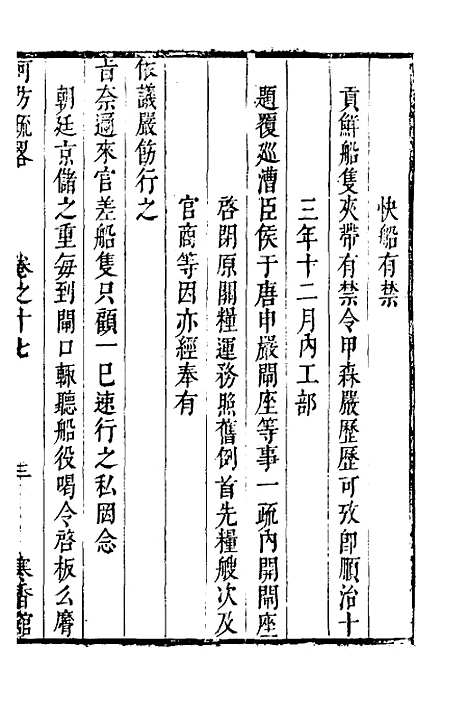 快船有禁
貢鮮船隻夾帶有禁令甲森嚴歷歷可攷卽順治十
三年十二月內工部
題覆巡漕臣侯于唐申嚴閘座等事一疏內開閘座
啓閉原關糧運務照舊例首先糧艘次及
官商等因亦經奉有
依議嚴飭行之
旨奈邇來官差船隻只顧一巳速行之私罔念
朝廷京儲之重每到閘口輒聽船役喝令啓板么麿
河防疏畧
卷之十七
三
寒香館